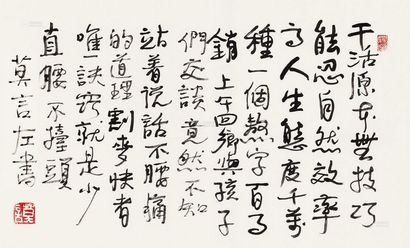 干活原本無技巧
能忍自然效率
高人生態度千萬
種一個熬字百事
銷上午回鄉與孩子
們交談竟然不知
站着说話不腰痛
的道理割麥快者
唯一訣竅就是少
直腰不擡頭
莫言左書